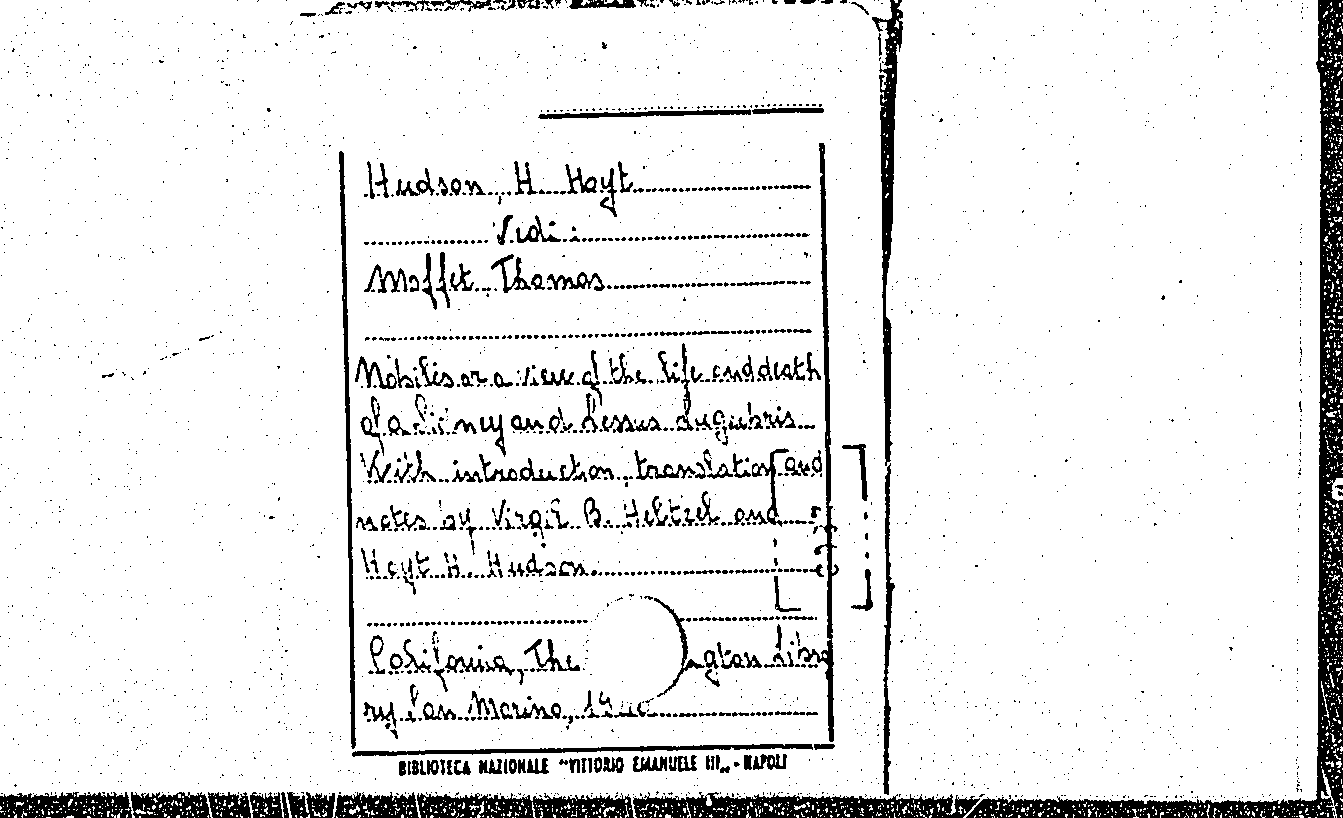 Hudson, H. Hoyt
Vedi:
Moffet, Thomas
Nobilis or a view of the life and death
of a Sidney and Lessus Lugubris
With introduction, translation and
notes by Virgil B. Heltzel and
Hoyt H. Hudson.
California, The ngton Libra
ry San Marino, 19
BIBLIOTECA NAZIONALE "VITTORIO EMANUELE III„ - NAPOLI